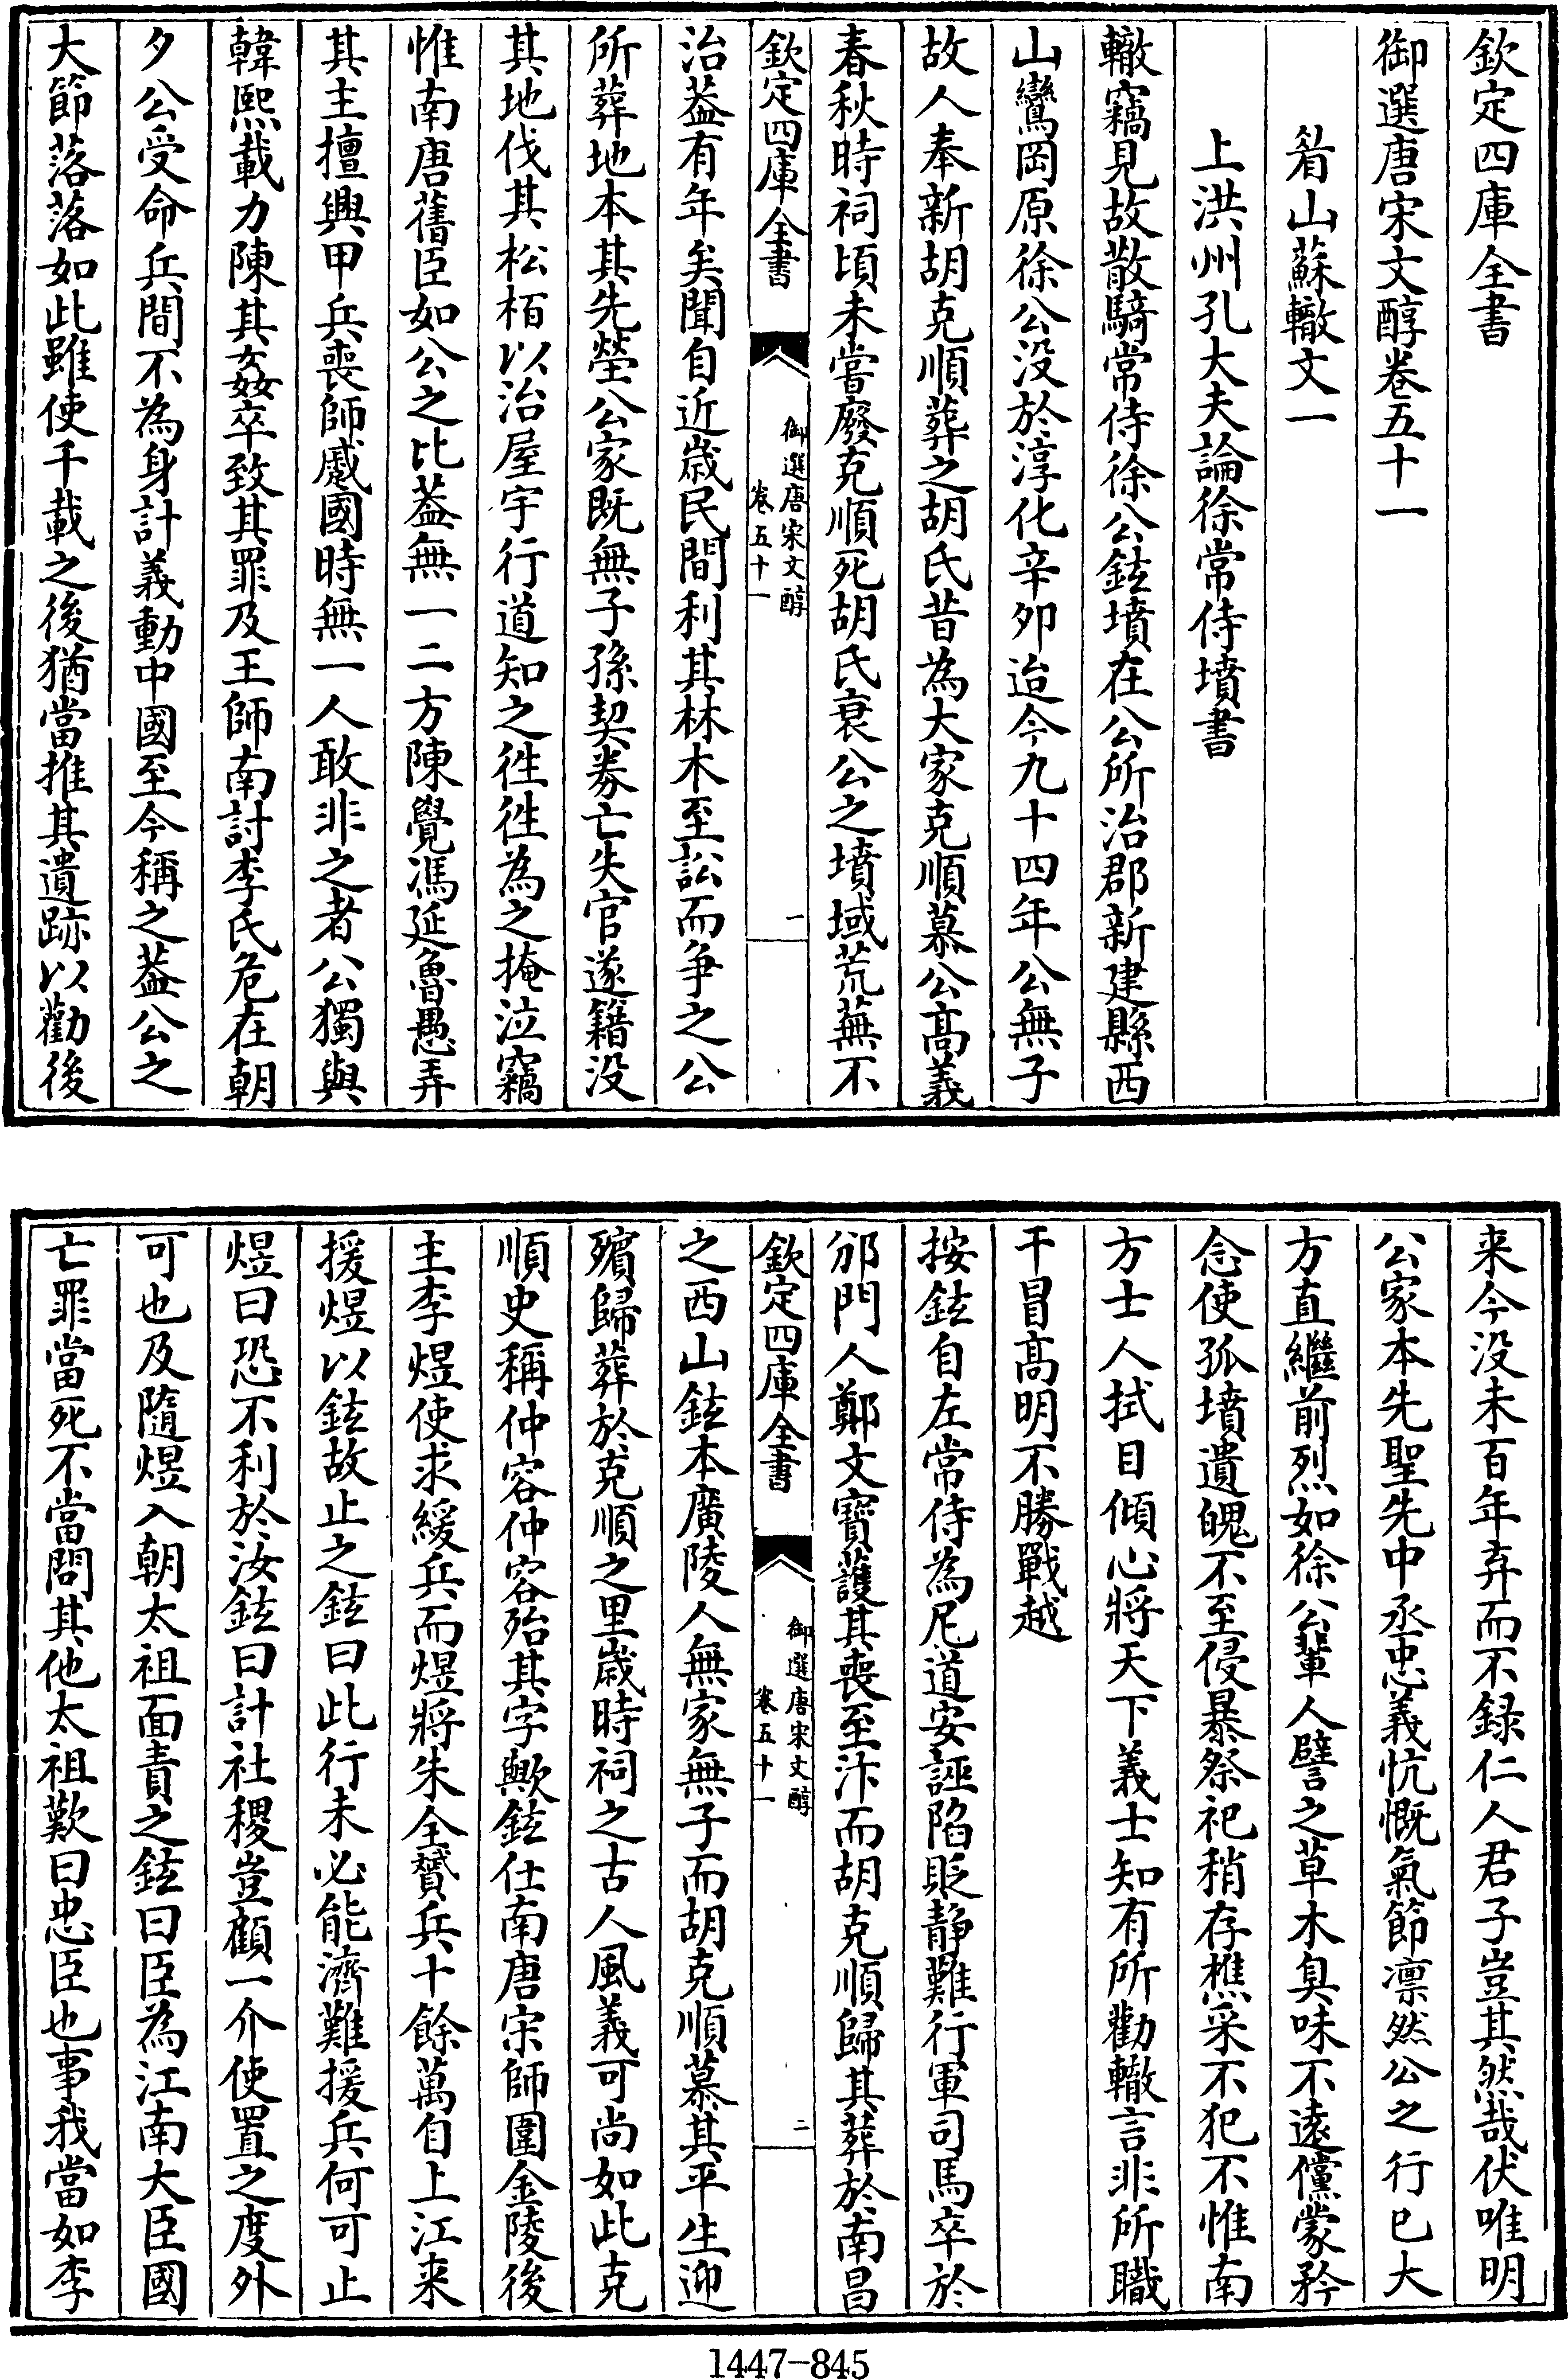 欽定四庫全書
御選唐宋文醇卷五十一
眉山蘇轍文一
上洪州孔大夫論徐常侍墳書
轍竊見故散騎常侍徐公鉉墳在公所治郡新建縣西
山鸞岡原徐公没於淳化辛卯迨今九十四年公無子
故人奉新胡克順葬之胡氏昔為大家克順慕公髙義
春秋時祠頃未嘗廢克順死胡氏衰公之墳域荒蕪不
欽定四庫全書
御選唐宋文醇
卷五十一
一
治葢有年矣聞自近嵗民間利其林木至訟而争之公
所葬地本其先塋公家既無子孫契券亡失官遂籍没
其地伐其松栢以治屋宇行道知之徃徃為之掩泣竊
惟南唐舊臣如公之比葢無一二方陳覺馮延魯愚弄
其主擅興甲兵喪師蹙國時無一人敢非之者公獨與
韓熙載力陳其姦卒致其罪及王師南討李氏危在朝
夕公受命兵間不為身計義動中國至今稱之葢公之
大節落落如此雖使千載之後猶當推其遺跡以勸後
来今没未百年弃而不録仁人君子豈其然哉伏唯明
公家本先聖先中丞忠義忼慨氣節凛然公之行已大
方直繼前烈如徐公輩人譬之草木臭味不逺儻蒙矜
念使孤墳遺魄不至侵暴祭祀稍存樵采不犯不惟南
方士人拭目傾心將天下義士知有所勸轍言非所職
干冒髙明不勝戰越
按鉉自左常侍為尼道安誣陷貶静難行軍司馬卒於
邠門人鄭文寳護其喪至汴而胡克順歸其葬於南昌
欽定四庫全書
御選唐宋文醇
卷五十一
二
之西山鉉本廣陵人無家無子而胡克順慕其平生迎
殯歸葬於克順之里嵗時祠之古人風義可尚如此克
順史稱仲容仲容殆其字歟鉉仕南唐宋師圍金陵後
主李煜使求緩兵而煜將朱全贇兵十餘萬自上江来
援煜以鉉故止之鉉曰此行未必能濟難援兵何可止
煜曰恐不利於汝鉉曰計社稷豈顧一介使置之度外
可也及隨煜入朝太祖面責之鉉曰臣為江南大臣國
亡罪當死不當問其他太祖歎曰忠臣也事我當如李
1447-845